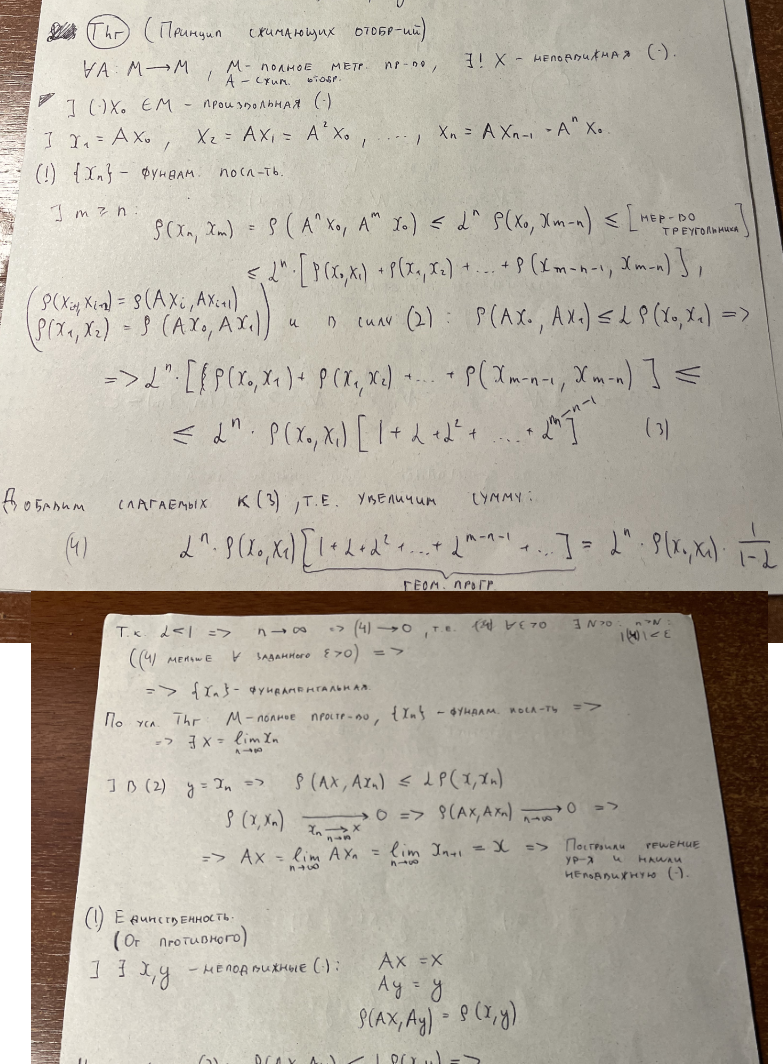 Thr (Принцип сжимающих отобр-ий)
∀A: M→M, M-полное метр. пр-во, ∃! X - неподвижная (·).
A - сжим. отобр.
] (·)X₀ ∈ M - произвольная (·)
] x₁ = AX₀, X₂ = AX₁ = A²X₀, ..., Xₙ = AXₙ₋₁ = AⁿX₀.
(!) {Xₙ} - фундам. посл-ть.
] m ≥ n:
ρ(xₙ, xₘ) = ρ(Aⁿx₀, Aᵐx₀) ≤ αⁿ ρ(x₀, xₘ₋ₙ) ≤ [нер-во треугольника]
≤ αⁿ·[ρ(x₀,x₁) + ρ(x₁,x₂) + ... + ρ(xₘ₋ₙ₋₁, xₘ₋ₙ)],
ρ(AXᵢ, AXᵢ₊₁)
(ρ(x₁,x₂) = ρ(AX₀, AX₁)) и в силу (2): ρ(AX₀, AX₁) ≤ αρ(x₀,x₁) =>
=> αⁿ·[ρ(x₀,x₁) + ρ(x₁,x₂) + ... + ρ(xₘ₋ₙ₋₁, xₘ₋ₙ)] ≤
≤ αⁿ·ρ(x₀,x₁)[1 + α + α² + .... + αᵐ⁻ⁿ⁻¹] (3)
Добавим слагаемых к (3), т.е. увеличим сумму:
(4) αⁿ·ρ(x₀,x₁)[1 + α + α² + ... + αᵐ⁻ⁿ⁻¹ + ...] = αⁿ·ρ(x₀,x₁)·1/(1-α)
геом. прогр.
Т.к. α<1 => n→∞ => (4)→0, т.е. ∀ε>0 ∃N>0: n>N: |(4)|<ε
((4) меньше ∀ заданного ε>0) =>
=> {xₙ} - фундаментальная.
По усл. Thr M-полное простр-во, {xₙ} - фундам. посл-ть =>
=> ∃ X = lim xₙ
n→∞
] в (2) y = xₙ => ρ(AX, AXₙ) ≤ αρ(x, xₙ)
ρ(x, xₙ) → 0 => ρ(AX, AXₙ) → 0 =>
xₙ→x n→∞
=> AX = lim AXₙ = lim xₙ₊₁ = x => Построили решение
n→∞ n→∞ ур-я и нашли
неподвижную (·).
(!) Единственность.
(От противного)
] ∃ x,y - неподвижные (·): AX = X
Ay = y
ρ(AX, Ay) = ρ(x,y)